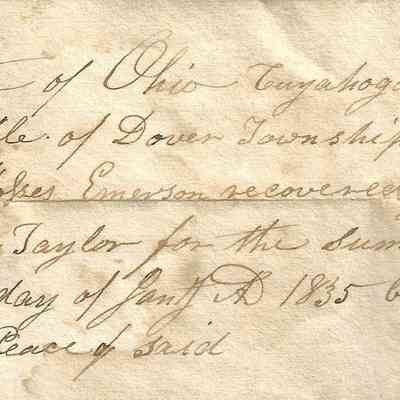 of Ohio Cuyahoga
of Dover Township
Moses Emerson recovered
Taylor for the sum
day of Jany AD 1835
Peace of said